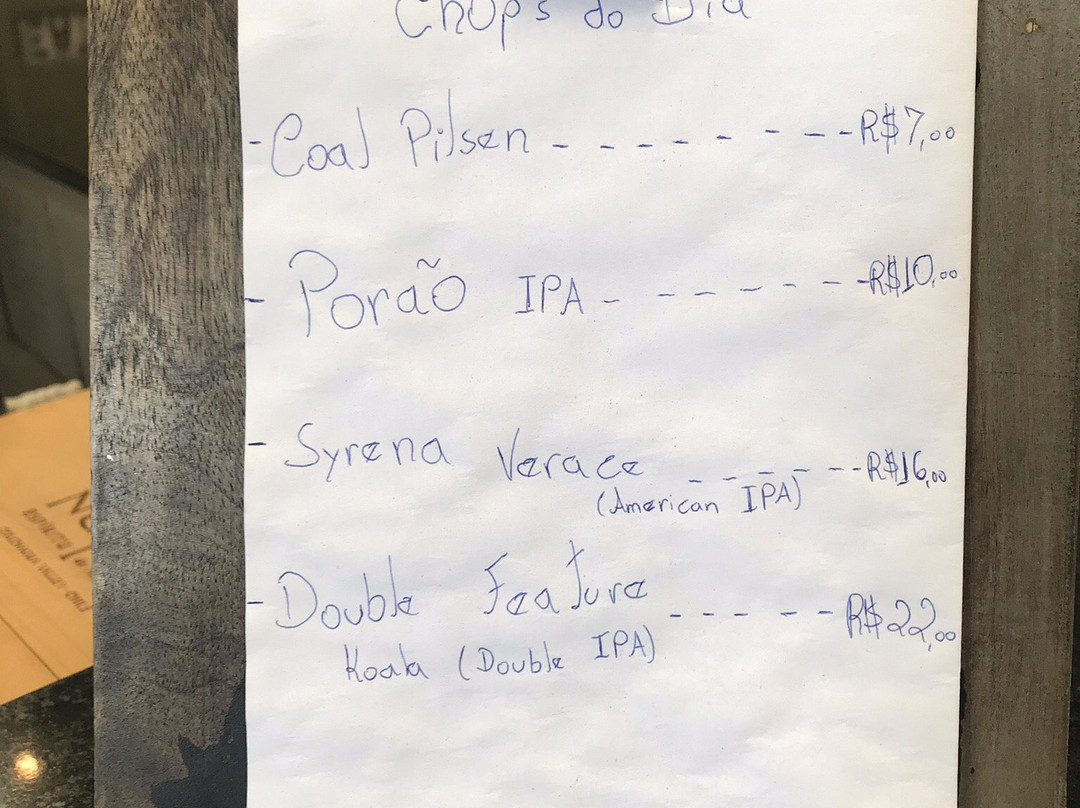 Chops do Dia
- Coal Pilsen - - - - - - - - R$7,00
- Porão IPA - - - - - - - - R$10,00
- Syrena Verace - - - - - R$16,00
(American IPA)
- Double Feature - - - - - R$22,00
Koala (Double IPA)